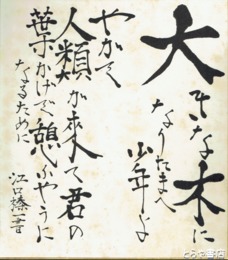 大きな木に
なりたまへ
少年よ
やがて
人類が来て君の
葉かげで憩ふやうに
なるために
江口榛一書